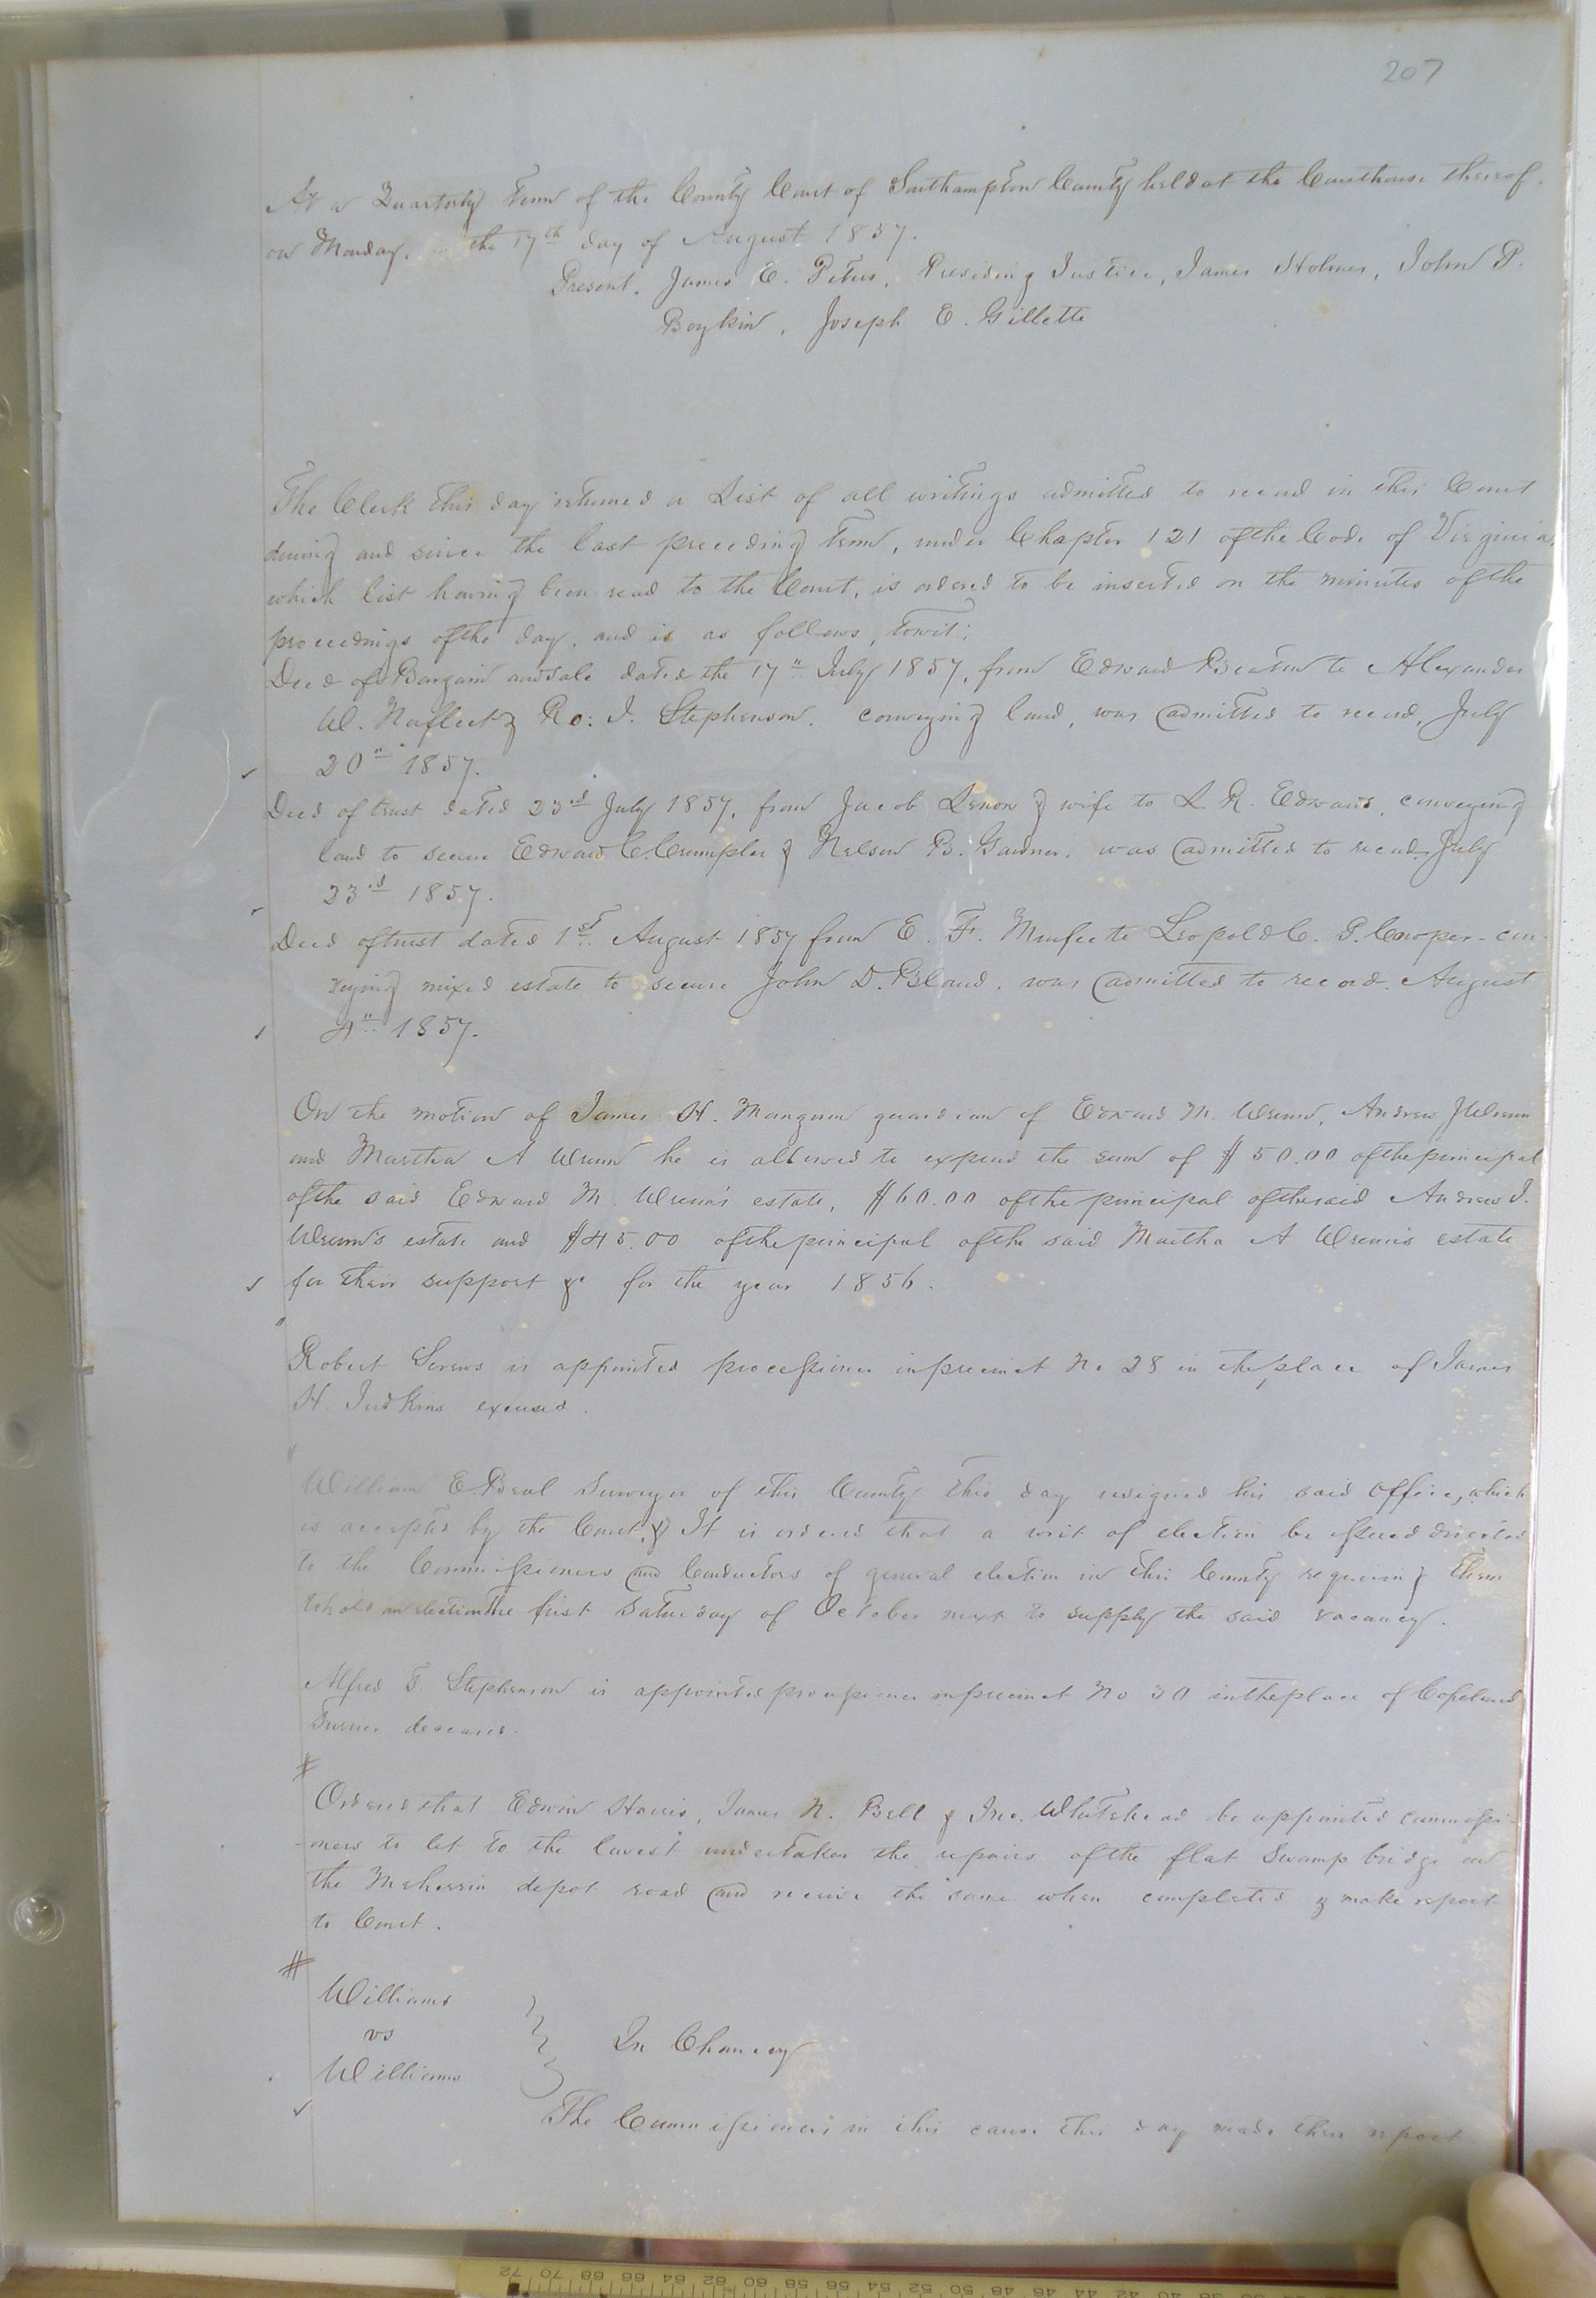 207
At a Quarterly Term of the County Court of Southampton County held at the Courthouse thereof.
on Monday, the 17th day of August 1857.
Present. James E. Peters, Presiding Justice, James Holmes, John P.
Boykin, Joseph E. Gillette
The Clerk this day returned a List of all writings admitted to record in this Court
during and since the last preceeding Term, under Chapter 121 of the Code of Virginia,
which list having been read to the Court, is ordered to be inserted on the minutes of the
proceedings of the day, and is as follows, towit;
Deed of Bargain and sale dated the 17" July 1857, from Edward Beaton to Alexander
W. Norfleet & Ro: J. Stephenson. conveying land, was admitted to record, July
20" 1857.
Deed of trust dated 23rd July 1857, from Jacob & wife to L R. Edwards, conveying
land to secure Edward C. Crumpler & Nelson B. Gardner. was admitted to record, July
23rd 1857.
Deed of trust dated 1st. August 1857 from E. F. to Leopold C. P. Cowper - con-
veying mixed estate to secure John D. Bland. was admitted to record. August
4" 1857.
On the motion of James H. Mangum guardian of Edward M. Wrenn, Andrew J Wrenn
and Martha A Wrenn he is allowed to expend the sum of $50.00 of the principal
of the said Edward M. Wrenn's estate, $60.00 of the principal of the said Andrew J.
Wrenn's estate and $45.00 of the principal of the said Martha A Wrenn's estate
for their support &c for the year 1856.
Robert Screws is appointed processioner in precinct No 28 in the place of James
H. Judkins excused.
William E. Beal Surveyor of this County this day resigned his said office, which
is accepted by the Court, & It is ordered that a writ of election be issued directed
to the Commissioners and Conductors of general election in this County requiring them
to hold an election the first Saturday of October next to supply the said vacancy.
Alfred T. Stephenson is appointed processioner in precinct No 30 in the place of Copeland
Turner deceased.
Ordered that Edwin Harris, James N. Bell & Jno. Whitehead be appointed commissi-
-oners to let to the lowest undertaker the repairs of the flat Swamp bridge on
the Meherrin depot road and receive the same when completed & make report
to Court.
Williams
vs
In Chancery
Williams
The Commissioners in this cause this day made their report
72 70 68 66 64 62 60 58 56 54 52 50 48 46 44 42 40